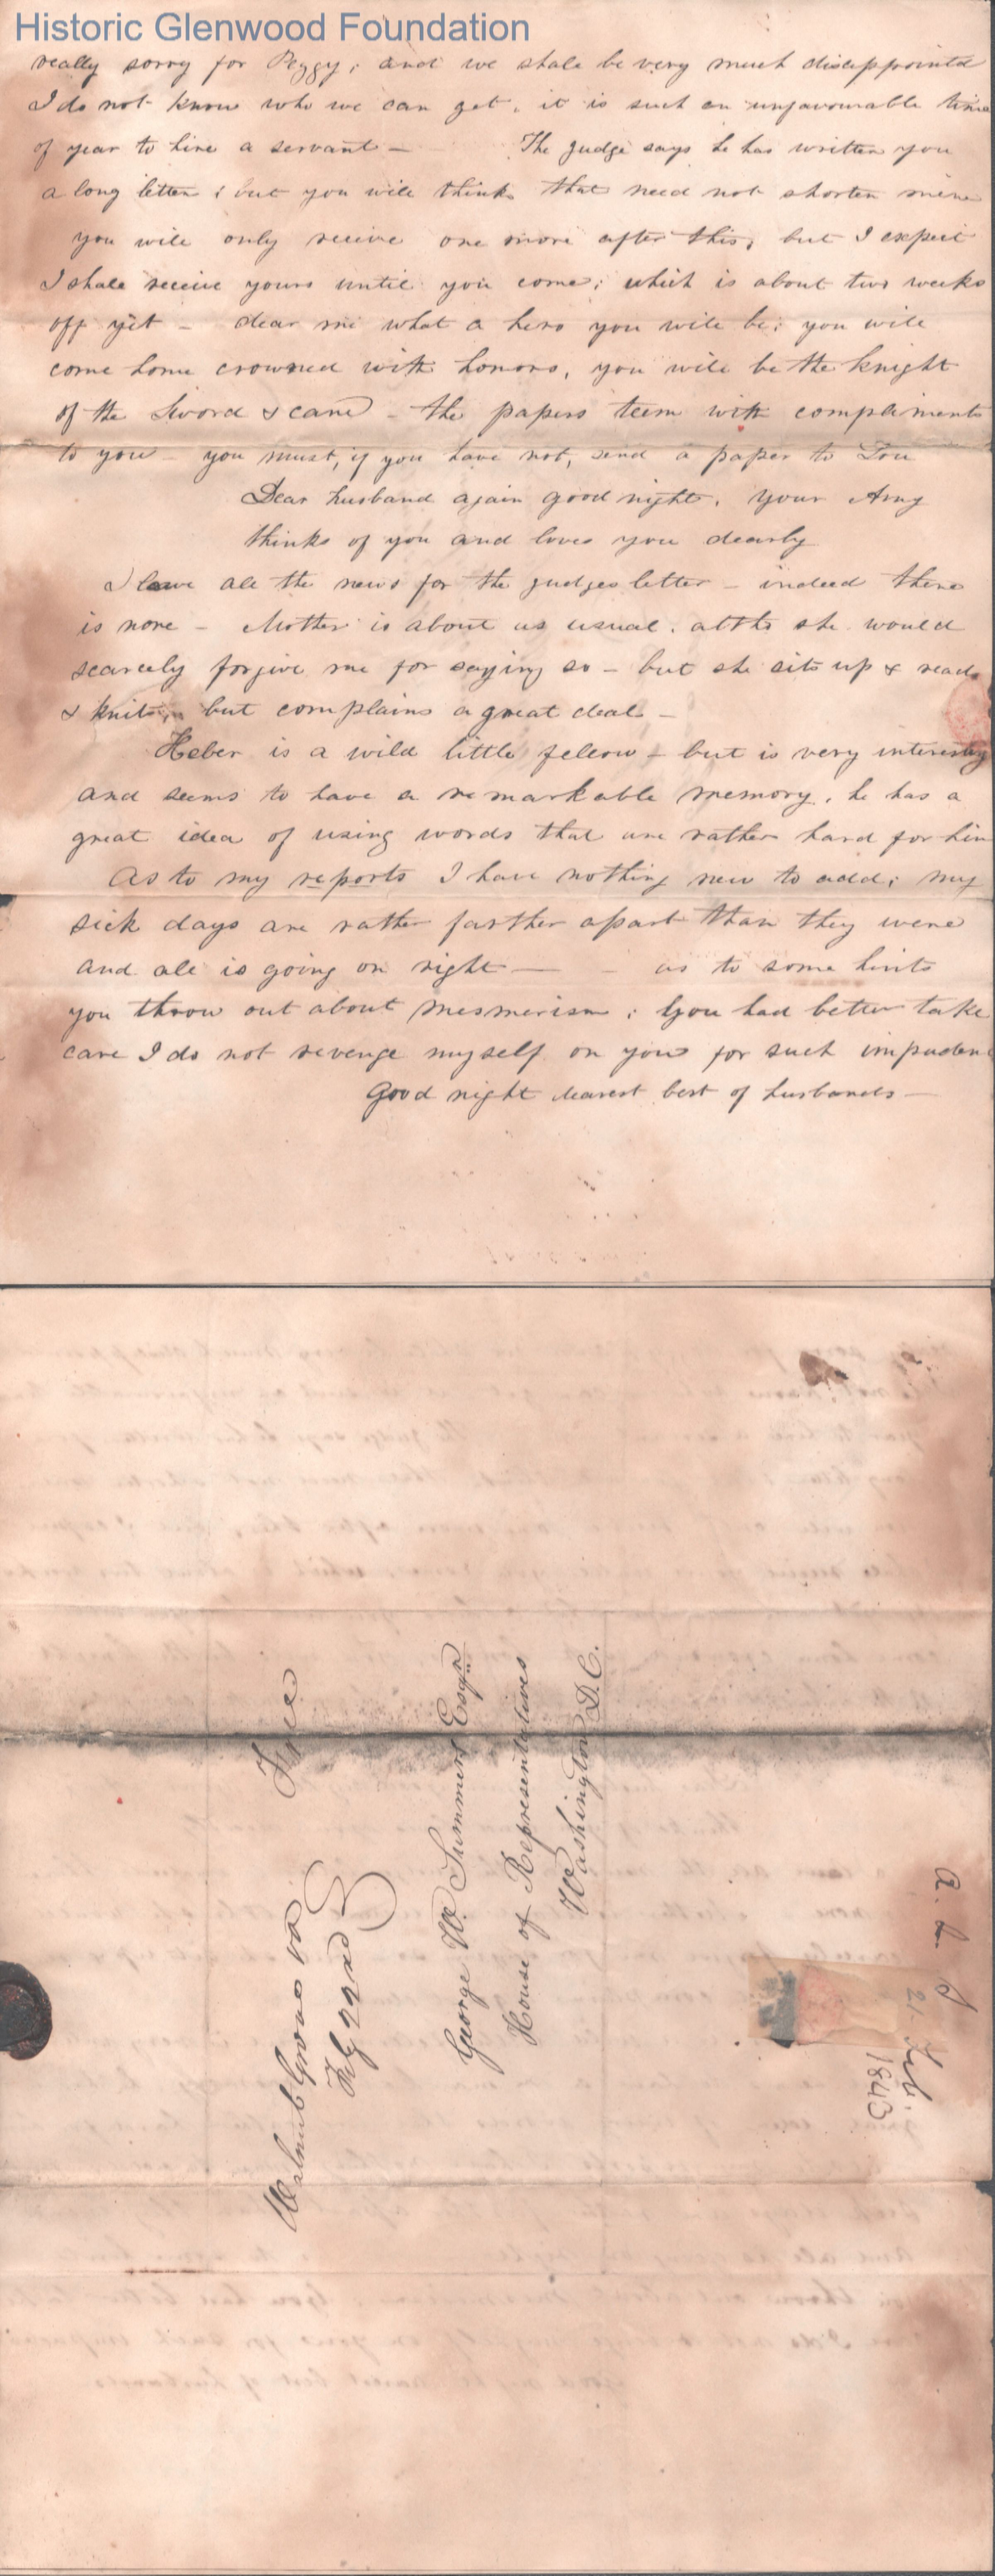 Historic Glenwood Foundation
really sorry for Peggy; and we shall be very much disappointed
I do not know who we can get, it is such an unfavourable time
of year to hire a servant — The Judge says he has written you
a long letter; but you will think that need not shorten mine
you will only receive one more after this, but I expect
I shall receive yours until you come; which is about two weeks
off yet – dear me what a hero you will be; you will
come home crowned with honors, you will be the knight
of the Sword & cane – the papers teem with compliments
to you – you must, if you have not, send a paper to Lou
Dear husband again good night. Your Amy
thinks of you and loves you dearly
I leave all the news for the judges letter – indeed there
is none – Mother is about as usual, altho she would
scarcely forgive me for saying so – but she sits up & reads
& knits, but complains a great deal –
Heber is a wild little fellow – but is very interesting
and seems to have a remarkable memory, he has a
great idea of using words that are rather hard for him
As to my reports I have nothing new to add; my
sick days are rather farther apart than they were
and all is going on right — as to some hints
you throw out about mesmerism; You had better take
care I do not revenge myself on you for such impudenc
Good night dearest best of husbands —
Walnut Grove Va
Feby 22nd
Free
George W. Summers Esqr.
House of Representatives
Washington D.C.
A. L. S
21 Feb.
1843